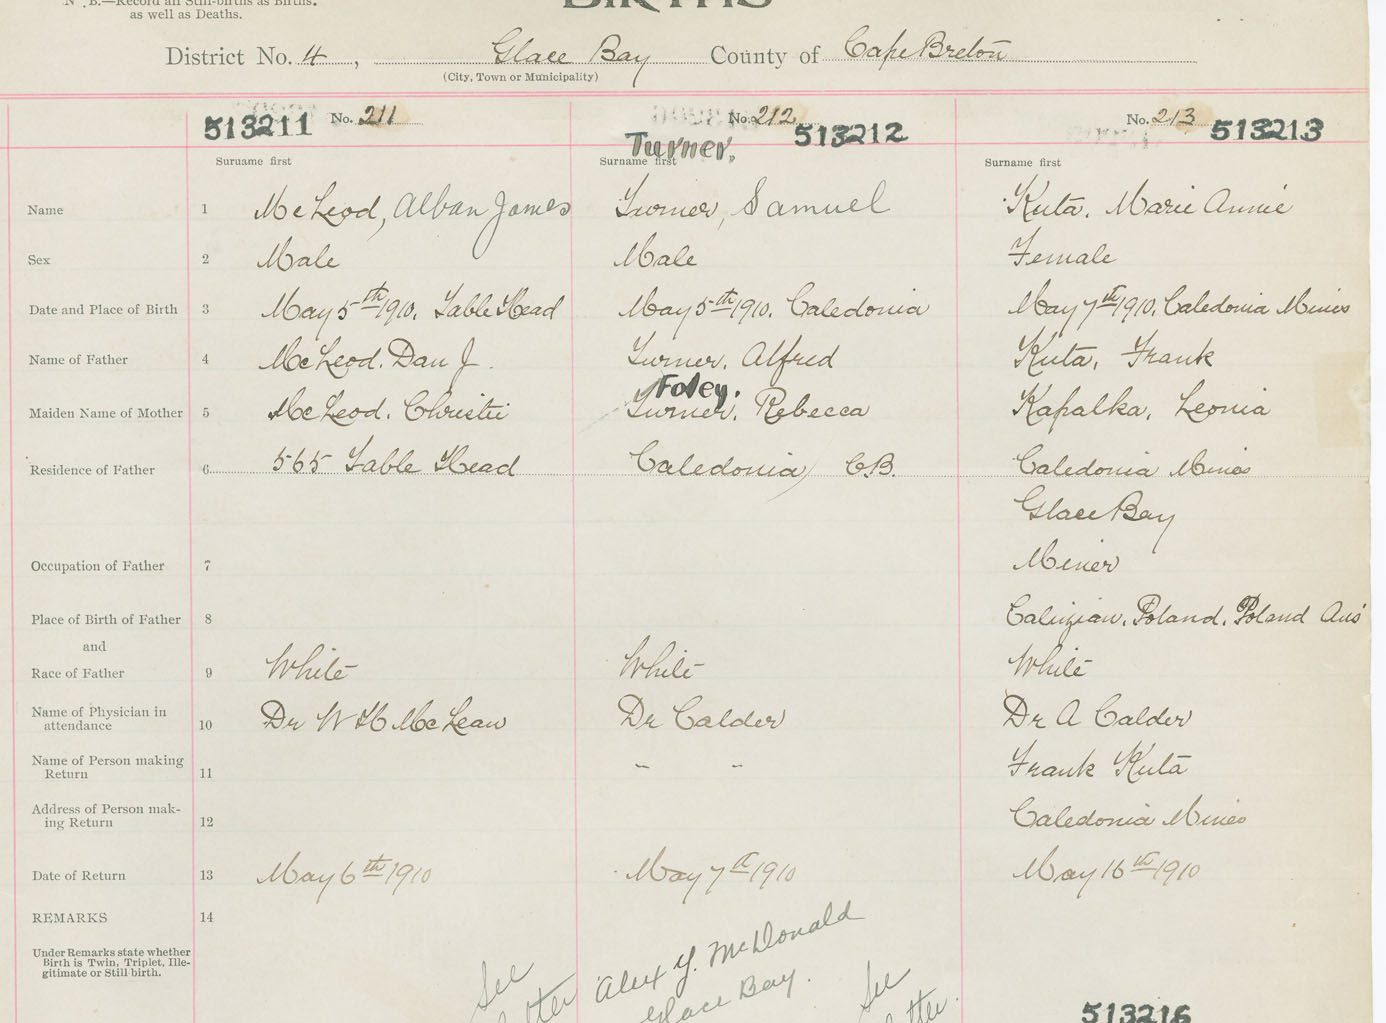 N.B.—Record all Still-births as Births,
as well as Deaths.
BIRTHS
District No. 4, Glace Bay County of Cape Breton
(City, Town or Municipality)
513211 No. 211 No. 212 513212 No. 213 513213
Turner.
Surname first Surname first Surname first
Name 1 McLeod, Alban James Turner, Samuel Kuta, Marie Annie
Sex 2 Male Male Female
Date and Place of Birth 3 May 5th 1910. Table Head May 5th 1910. Caledonia May 7th 1910. Caledonia Mines
Name of Father 4 McLeod. Dan J. Turner. Alfred Kuta, Frank
Foley.
Maiden Name of Mother 5 McLeod. Christie Turner. Rebecca Kapalka, Leonia
Residence of Father 6 565 Table Head Caledonia C.B. Caledonia Mines
Glace Bay
Occupation of Father 7 Miner
Place of Birth of Father 8 Poland. Poland Aus
and
Race of Father 9 White White White
Name of Physician in
attendance 10 Dr W H McLean Dr Calder Dr A Calder
Name of Person making
Return 11 " " Frank Kuta
Address of Person mak-
ing Return 12 Caledonia Mines
Date of Return 13 May 6th 1910 May 7th 1910 May 16th 1910
REMARKS 14
Under Remarks state whether
Birth is Twin, Triplet, Ille-
gitimate or Still birth.
See Alex Y. McDonald See
letter Glace Bay. letter.
513216